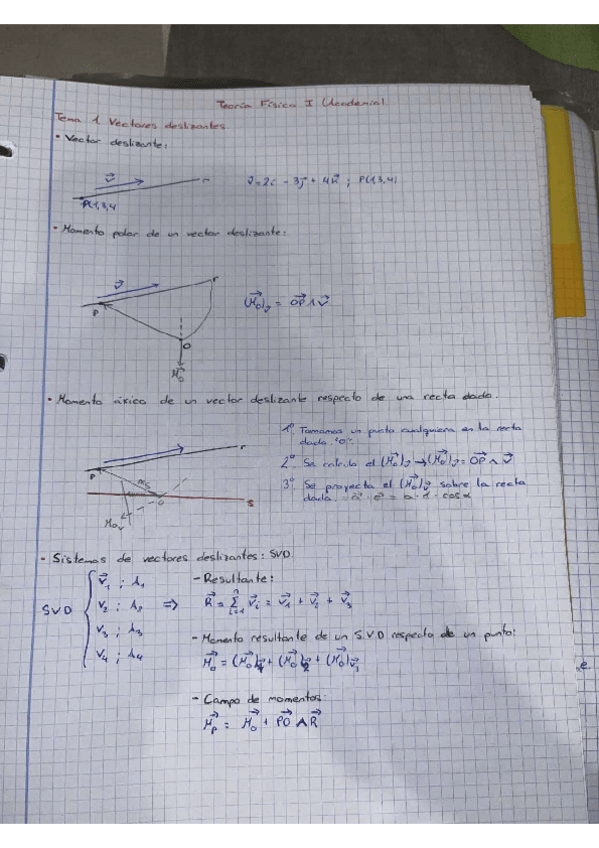 Teoría Física I (Academia)
Tema 1 Vectores deslizantes
• Vector deslizante:
v⃗ r
P(1,3,4
v⃗=2i - 3j⃗ + 4k⃗ ; P(1,3,4)
• Momento polar de un vector deslizante:
v⃗ r
P
O
M⃗o
(M⃗o)v⃗ = OP⃗ ∧ v⃗
• Momento áxico de un vector deslizante respecto de una recta dada.
r
P
Ms
O
s
Mov
1º Tomamos un punto cualquiera en la recta
dada. "O".
2º Se calcula el (M⃗o)v⃗ → (M⃗o)v⃗ = OP⃗ ∧ v⃗
3º Se proyecta el (M⃗o)v⃗ sobre la recta
dada. = a⃗ · e⃗ = a · 1 · cos α
- Sistemas de vectores deslizantes: SVD
SVD
v⃗1 ; λ1
v2 ; λ2 =>
v⃗3 ; λ3
v⃗4 ; λ4
- Resultante:
R⃗ = Σ v⃗i = v⃗1 + v⃗2 + v⃗3
n
i=1
- Momento resultante de un S.V.D respecto de un punto:
M⃗o = (M⃗o)v⃗1 + (M⃗o)v⃗2 + (M⃗o)v⃗3
- Campo de momentos:
M⃗p = M⃗o + PO⃗ ∧ R⃗
e